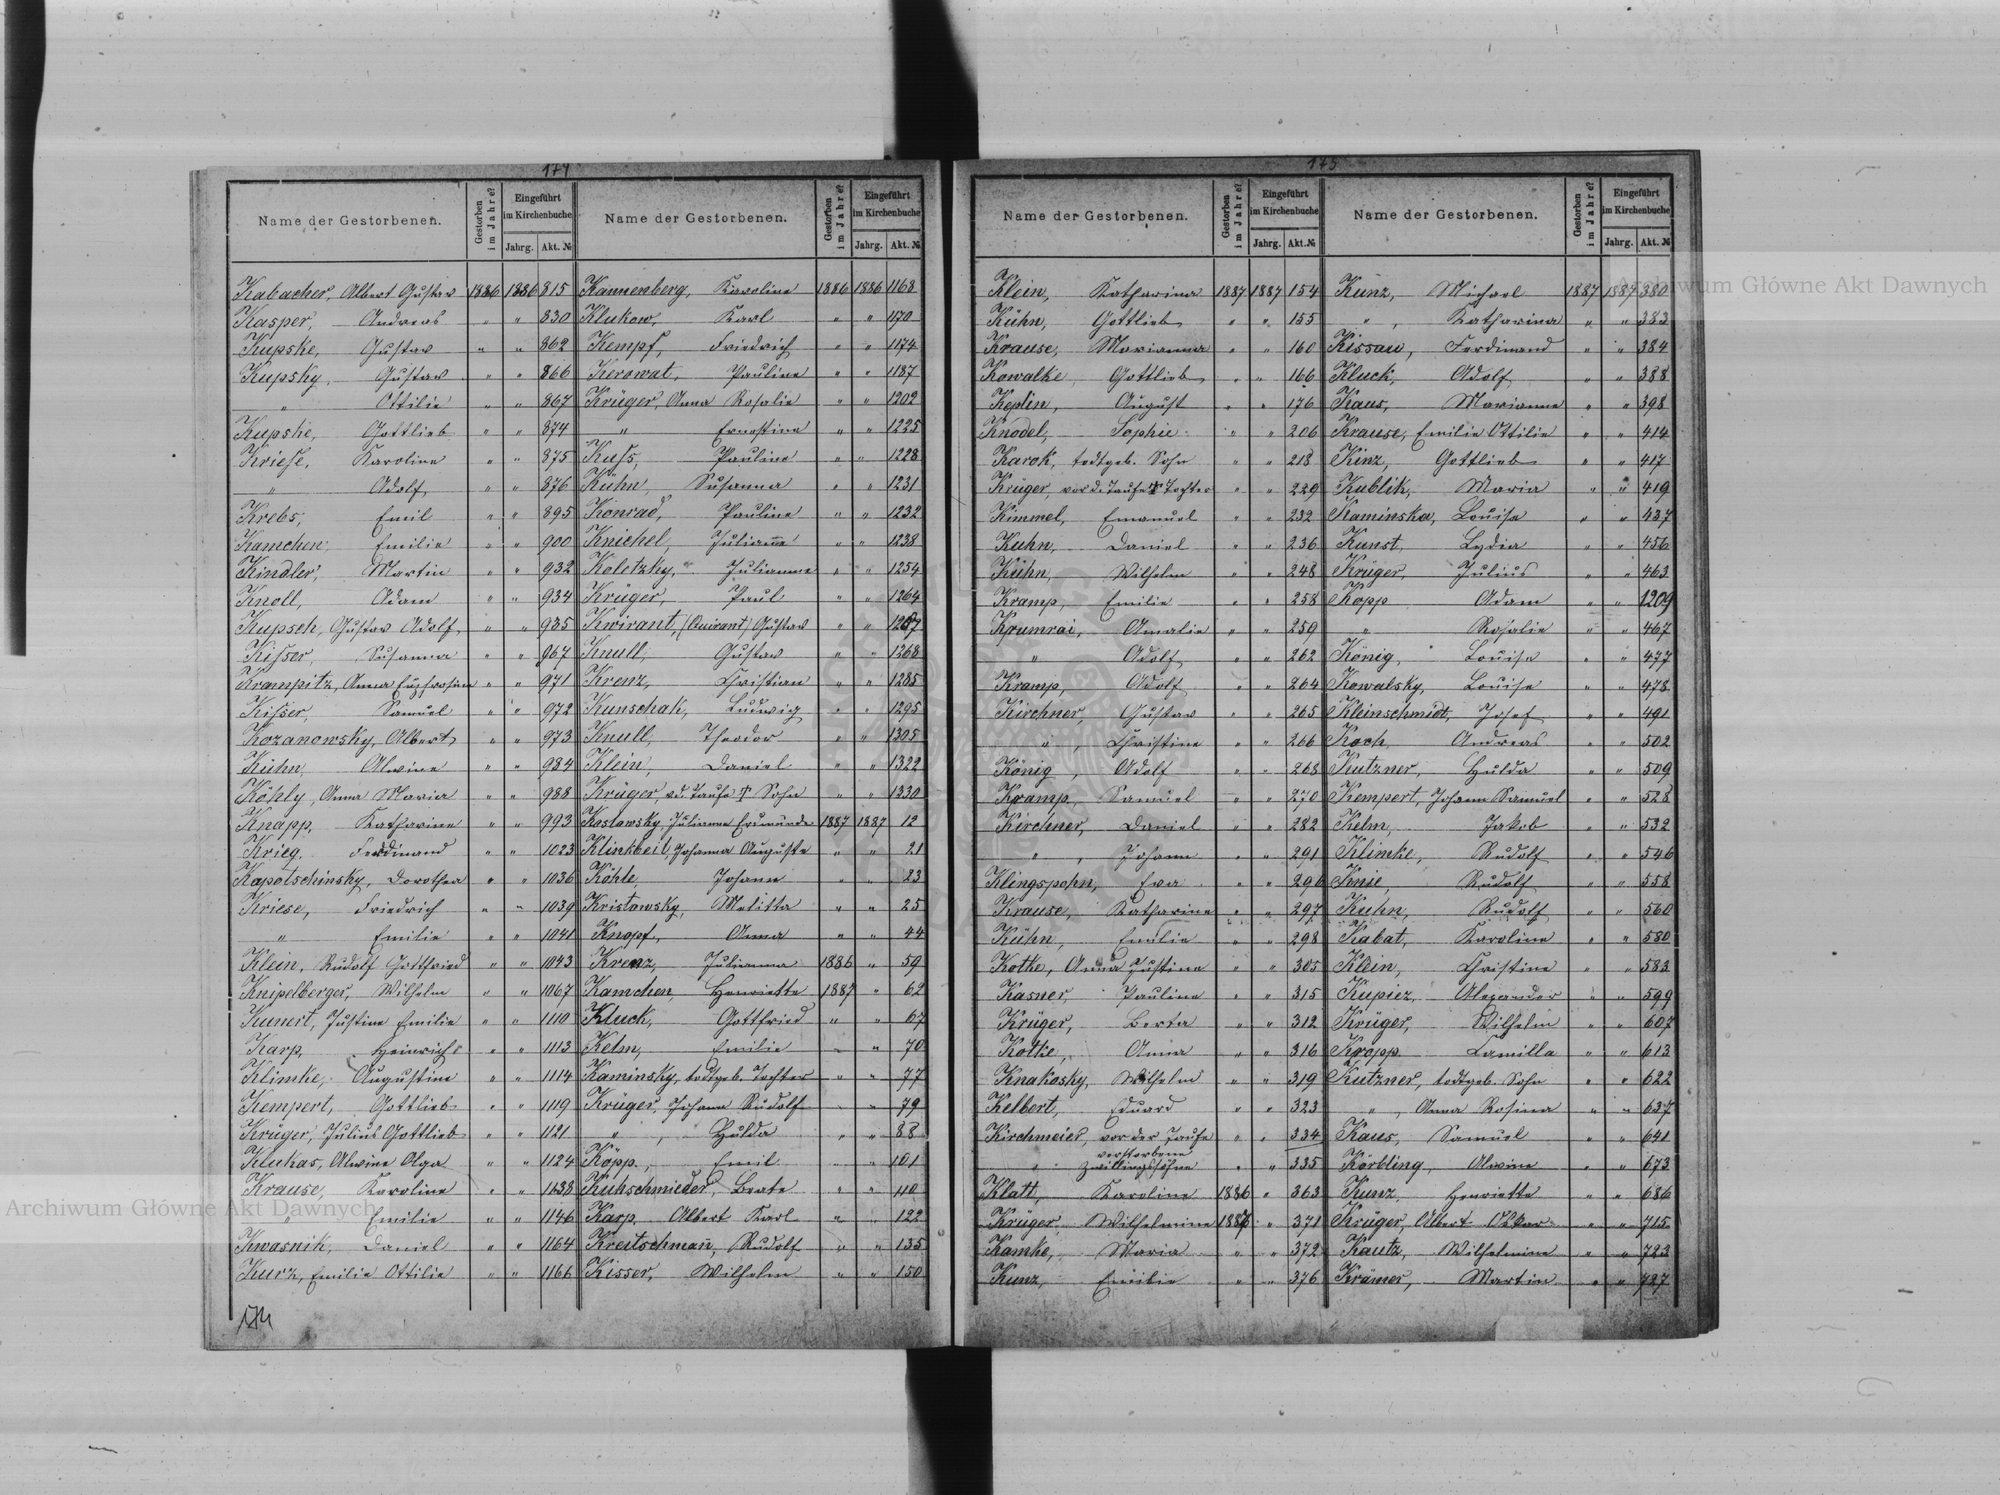 174
Name der Gestorbenen. Gestorben im Jahre? Eingeführt im Kirchenbuche Jahrg. Akt. № Name der Gestorbenen. Gestorben im Jahre? Eingeführt im Kirchenbuche Jahrg. Akt. №
Kabacher, Albert Gustav 1886 1886 815 Kannenberg, Karoline 1886 1886 1168
Kasper, Andreas " " 830 Klukow, Karl " " 1170
Kupske, Gustav " " 862 Kempf, Friedrich " " 1174
Kupsky, Gustav " " 866 Kerowat, Pauline " " 1187
" Ottilie " " 867 Krüger, Anna Rosalie " " 1202
Kupske, Gottlieb " " 874 " Ernestine " " 1225
Kriese, Karoline " " 875 Kuss, Pauline " " 1228
" Adolf " " 876 Kuhn, Susanna " " 1231
Krebs, Emil " " 895 Konrad, Pauline " " 1232
Kamchen, Emilie " " 900 Knichel, Julianne " " 1238
Kindler, Martin " " 932 Koletzky, Julianne " " 1254
Knoll, Adam " " 934 Krüger, Paul " " 1264
Kupsch, Gustav Adolf " " 935 Kwirant, (Quirant) Gustav " " 1267
Kisser, Susanna " " 967 Knull, Gustav " " 1268
Krampitz, Anna Eufrosine " " 971 Krenz, Christian " " 1285
Kisser, Samuel " " 972 Kunschak, Ludwig " " 1295
Kozanowsky, Albert " " 973 Knull, Theodor " " 1305
Kühn, Alwine " " 984 Klein, Daniel " " 1322
Köhly, Anna Maria " " 988 Krüger, v.d. Taufe † Sohn " " 1330
Knapp, Katharine " " 993 Koslowsky, Julianne 1887 1887 12
Krieg, Ferdinand " " 1023 Klinkbeil, Johanna Auguste " " 21
Kapotschinsky, Dorothea " " 1036 Köhle, Johann " " 23
Kriese, Friedrich " " 1039 Kristowsky, Melitta " " 25
" Emilie " " 1041 Knopf, Anna " " 44
Klein, Rudolf Gottfried " " 1043 Krenz, Julianna 1886 " 59
Knipelberger, Wilhelm " " 1067 Kamchen, Henriette 1887 " 62
Kunert, Justine Emilie " " 1110 Kluck, Gottfried " " 67
Karp, Heinrich " " 1113 Kelm, Emilie " " 70
Klimke, Augustine " " 1114 Kaminsky, todtgeb. Tochter " " 77
Kempert, Gottlieb " " 1119 Krüger, Johann Rudolf " " 79
Krüger, Julius Gottlieb " " 1121 " , Hulda " " 88
Klukas, Alwine Olga " " 1124 Köpp, Emil " " 101
Krause, Karoline " " 1138 Kuhschmieder, Beate " " 110
" Emilie " " 1146 Karp, Albert Karl " " 122
Kwasnik, Daniel " " 1164 Kreitschmañ, Rudolf " " 135
Kurz, Emilie Ottilie " " 1166 Kisser, Wilhelm " " 150
174
175
Name der Gestorbenen. Gestorben im Jahre? Eingeführt im Kirchenbuche Jahrg. Akt. № Name der Gestorbenen. Gestorben im Jahre? Eingeführt im Kirchenbuche Jahrg. Akt. №
Klein, Katharina 1887 1887 154 Kunz, Michael 1887 1887 380
Kühn, Gottlieb " " 155 " , Katharina " " 383
Krause, Marianna " " 160 Kissau, Ferdinand " " 384
Kowalke, Gottlieb " " 166 Kluck, Adolf " " 388
Keplin, August " " 176 Kaus, Marianne " " 398
Knodel, Sophie " " 206 Krause, Emilie Ottilie " " 414
Karok, todtgeb. Sohn " " 218 Kinz, Gottlieb " " 417
Krüger, vor d. Taufe † Tochter " " 229 Kublik, Maria " " 419
Kimmel, Emanuel " " 232 Kaminska, Louise " " 437
Kuhn, Daniel " " 236 Kunst, Lydia " " 456
Kühn, Wilhelm " " 248 Krüger, Julius " " 463
Kramp, Emilie " " 258 Kopp Adam " " 1209
Krumrai, Amalie " " 259 " Rosalie " " 467
" Adolf " " 262 König, Louise " " 477
Kramp, Adolf " " 264 Kowalsky, Louise " " 478
Kirchner, Gustav " " 265 Kleinschmidt, Josef " " 491
" , Christine " " 266 Koch, Andreas " " 502
König, Adolf " " 268 Kutzner, Hulda " " 509
Kramp, Samuel " " 270 Kempert, Johann Samuel " " 528
Kirchner, Daniel " " 282 Kelm, Jakob " " 532
" , Johann " " 291 Klimke, Rudolf " " 546
Klingspohn, Eva " " 296 Knie, Rudolf " " 558
Krause, Katharine " " 297 Kuhn, Rudolf " " 560
Kühn, Emilie " " 298 Kabat, Karoline " " 580
Kotke, Anna Justine " " 305 Klein, Christine " " 583
Kasner, Pauline " " 315 Kupiez, Alexander " " 599
Krüger, Berta " " 312 Krüger, Wilhelm " " 607
Kotke, Anna " " 316 Kropp, Camilla " " 613
Knakosky, Wilhelm " " 319 Kutzner, todtgeb. Sohn " " 622
Kelbert, Eduard " " 323 " , Anna Rosina " " 637
Kirchmeier, vor der Taufe " " 334 Kaus, Samuel " " 641
" verstorbene Zwillingssöhne " " 335 Körbling, Alwine " " 673
Klatt, Karoline 1886 " 363 Kunz, Henriette " " 686
Krüger, Wilhelmine 1887 " 371 Krüger, Albert Oskar " " 715
Kamke, Maria " " 372 Kautz, Wilhelmine " " 723
Kunz, Emilie " " 376 Krämer, Martin " " 727
Archiwum Główne Akt Dawnych
Archiwum Główne Akt Dawnych